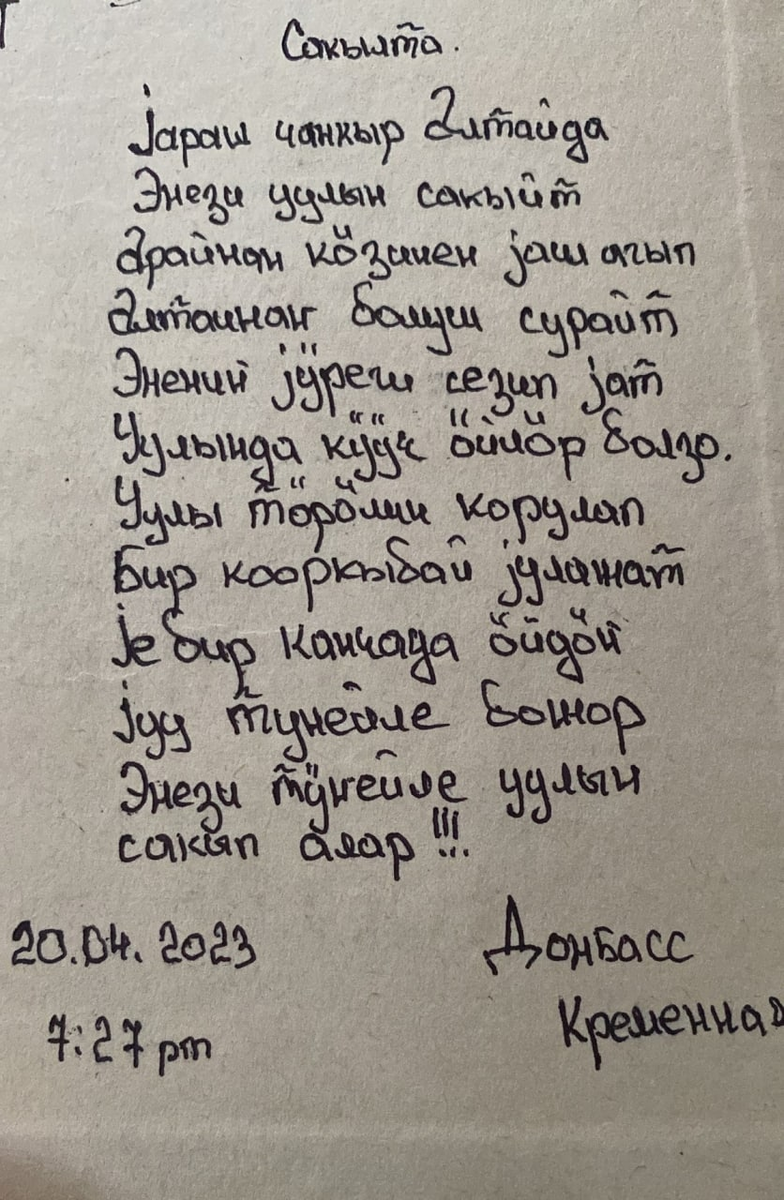 Сакылта.
Јараш чанкыр Алтайда
Энези уулын сакыйт
Арайнаҥ кӧзинеҥ јаш агып
Алтаинаҥ болуш сурайт
Энениҥ јӱреги сезип јат
Уулында кӱӱч ӧйлӧр болзо.
Уулы тӧрӧлин корулап
Бир кооркыбай јулажат
Је бир канчада ӧйдӧҥ
Јуу тунейле божор
Энези тӱнейле уулын
сакып алар!!!
20.04.2023
Донбасс
7:27 pm
Кременная